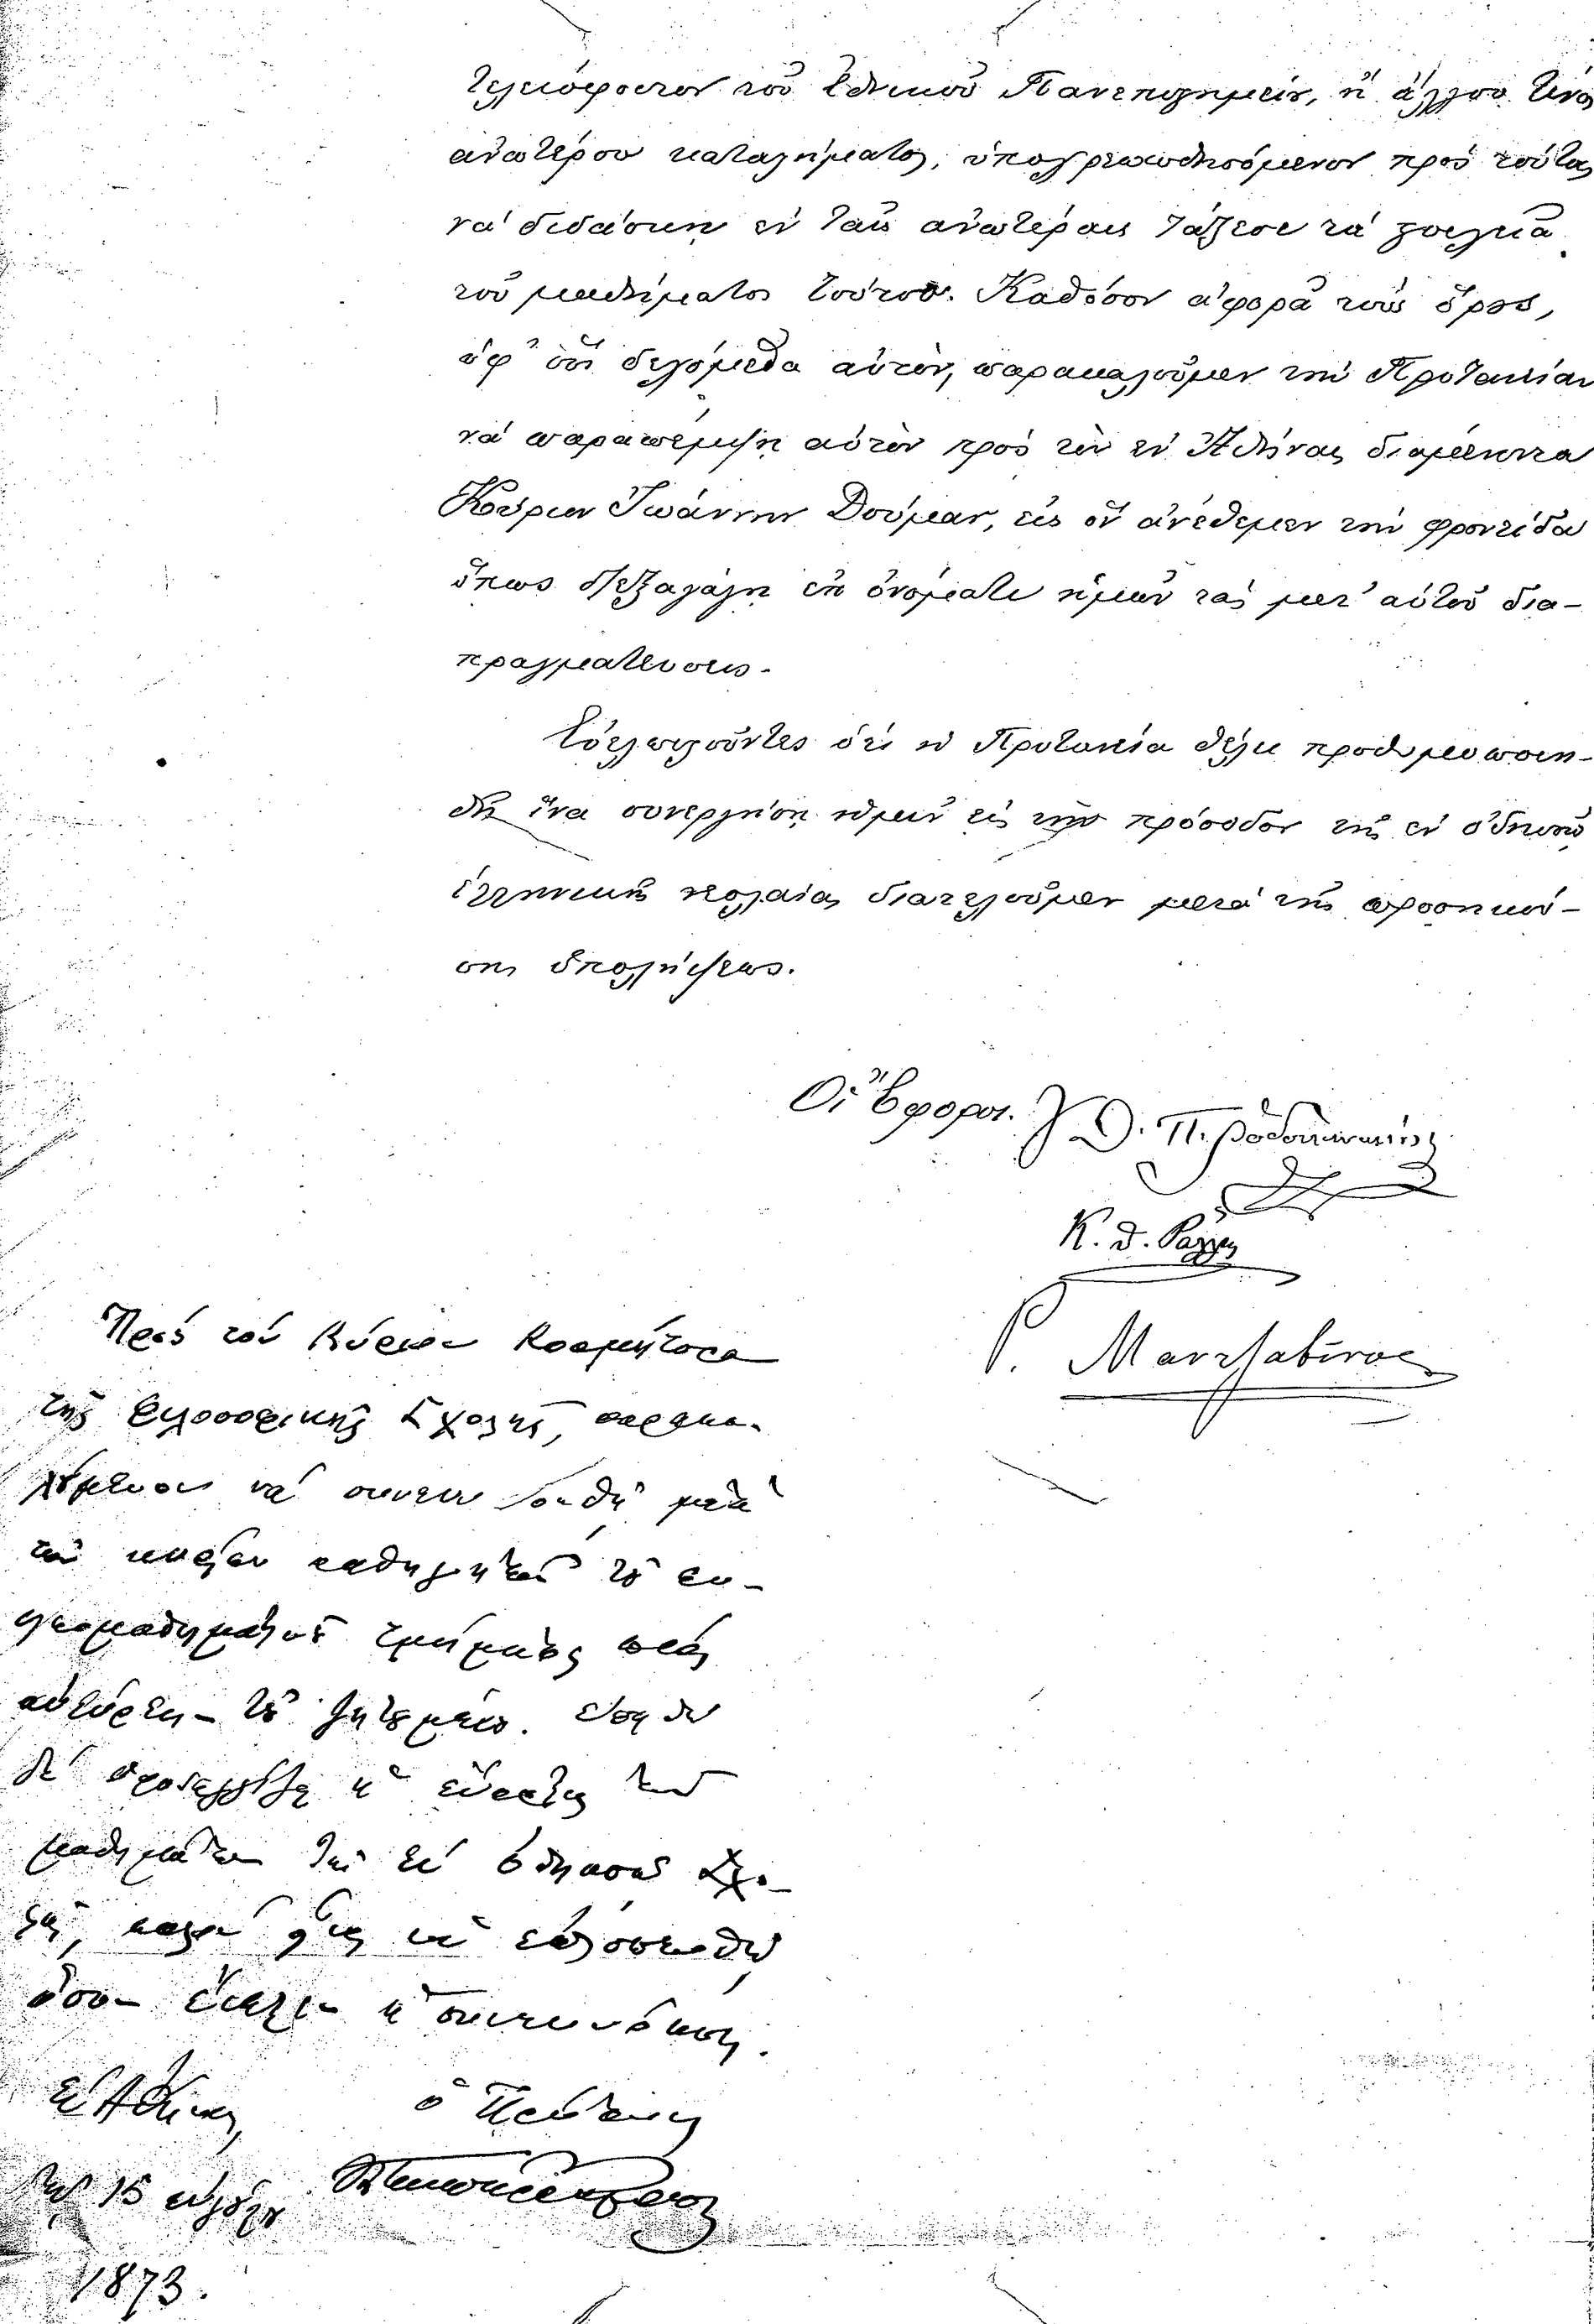 τελειόφοιτον τοῦ Ἐθνικοῦ Πανεπιστημείου, ἢ ἄλλου τινὸς
ἀνωτέρου καταστήματος, ὑποχρεωθησόμενον πρὸς τούτοις
νὰ διδάσκῃ ἐν ταῖς ἀνωτέραις τάξεσι τὰ στοιχεῖα
τοῦ μαθήματος τούτου. Καθόσον ἀφορᾷ τοὺς ὅρους,
ὑφ' οὓς δεχόμεθα αὐτὸν, παρακαλοῦμεν τὴν Πρυτανείαν
νὰ παραπέμψῃ αὐτὸν πρὸς τὸν ἐν Ἀθήναις διαμένοντα
Κύριον Ἰωάννην Δούμαν, εἰς ὃν ἀνέθεμεν τὴν φροντίδα
ὅπως διεξαγάγῃ ἐπ' ὀνόματι ἡμῶν τὰς μετ' αὐτοῦ δια-
πραγματεύσεις.
Εὐελπιστοῦντες ὅτι ἡ Πρυτανεία θέλει προθυμοποιη-
θῆ ἵνα συνεργήσῃ ἡμῖν εἰς τὴν πρόοδον τῆς ἐν Ὀδησσῷ
ἑλληνικῆς νεολαίας διατελοῦμεν μετὰ τῆς προσηκού-
σης ὑπολήψεως.
Οἱ Ἔφοροι.
Δ. Π. Ῥοδοκανάκης
Κ. Δ. Ράλλης
Γ. Μαντζαβῖνος
Πρὸς τὸν Κύριον Κοσμήτορα
τῆς Φιλοσοφικῆς Σχολῆς, παρακα-
λούμενον νὰ συνεννοηθῇ μετὰ
τῶν κυρίων καθηγητῶν τοῦ φυ-
σικομαθηματικοῦ τμήματος πρὸς
τοῦ ζητουμένου.
δὲ ἡ εὕρεσις τῶν
μαθημάτων τῆς ἐν Ὀδησσῷ Σχο-
λῆς,
ὅσον ἡ συνεννόησις.
Ἐν Ἀθήναις
ὁ Πρύτανις
τῇ 15
1873.